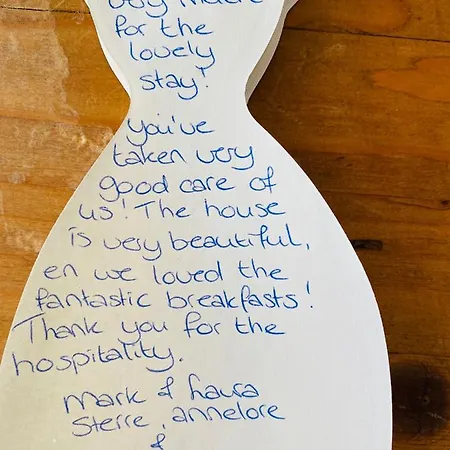 very much
for the
lovely
stay!
You've
taken very
good care of
us! The house
is very beautiful,
en we loved the
fantastic breakfasts!
Thank you for the
hospitality.
Mark & Laura
Sterre, annelore
&